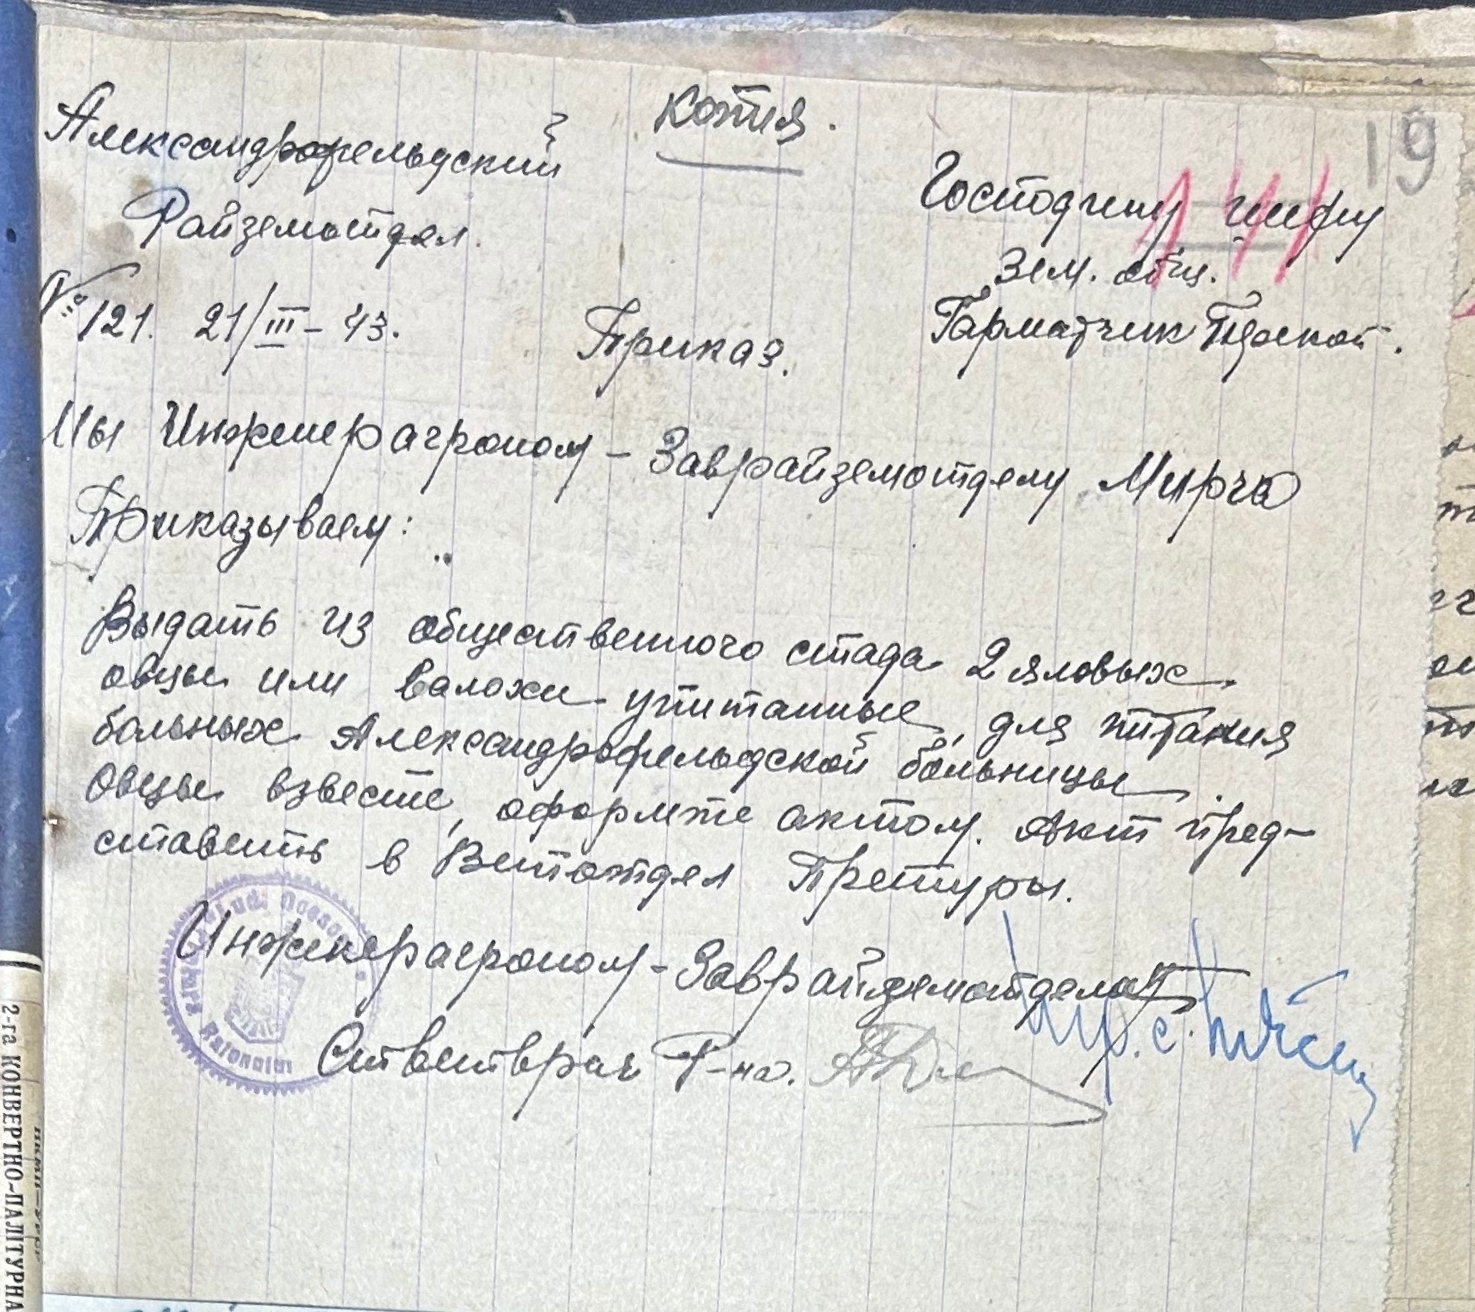 Копия.
19
Александрофельдский
Райземотдел.
№ 121. 21/III-43.
Господину шефу
Зем. общ.
Гарматчик
Приказ.
Мы Инженерагроном - Заврайземотделу Мирча
Приказываем:
Выдать из общественного стада 2 яловых
овцы или валахи упитанные, для питания
больных Александрофельдской больницы.
Овцы взвесте, оформте актом. Акт пред-
ставить в Ветотдел Претуры.
Инженерагроном - Заврайземотдела
Стветврач Р-на.
2-га КОНВЕРТНО-ПАЛІТУРНА